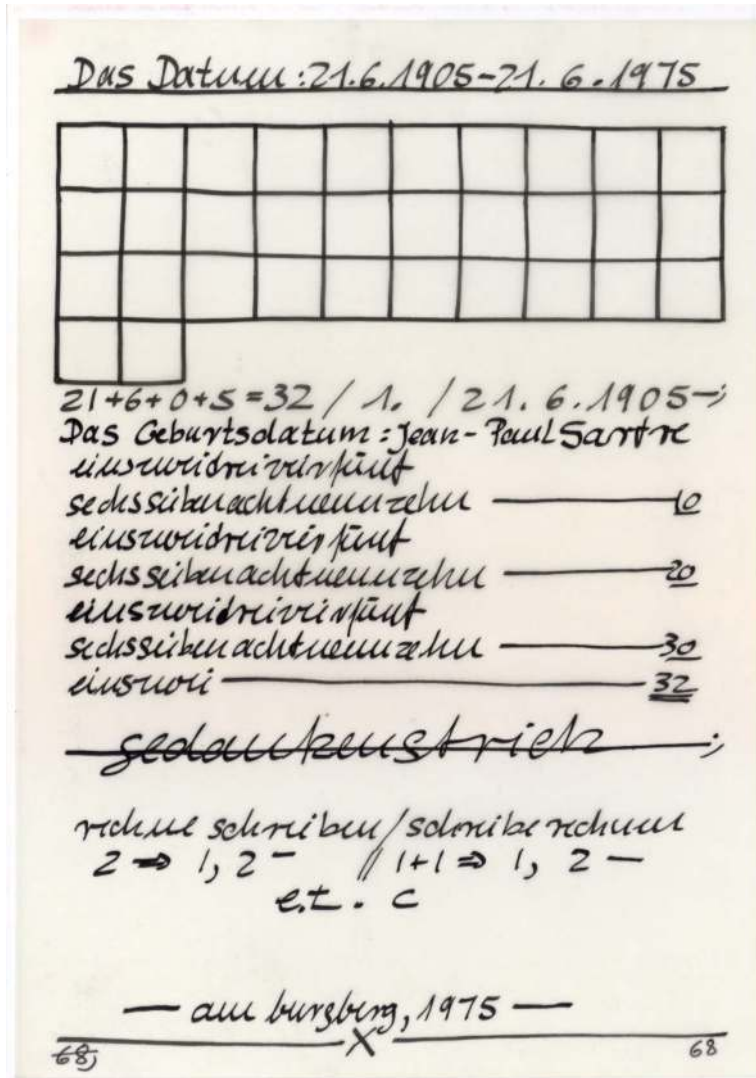 Das Datum : 21.6.1905-21.6.1975
21+6+0+5=32 / 1. / 21.6.1905-;
Das Geburtsdatum : Jean-Paul Sartre
einszweidreivierfünf
sechssiebenachtneunzehn — 10
einszweidreivierfünf
sechssiebenachtneunzehn — 20
einszweidreivierfünf
sechssiebenachtneunzehn — 30
einszwei — 32
gedankenstrich ;
rechne schreiben / schreibe rechnen
2 ⇒ 1, 2 — // 1+1 ⇒ 1, 2 —
e.t. c
— am burgberg, 1975 —
68, X 68